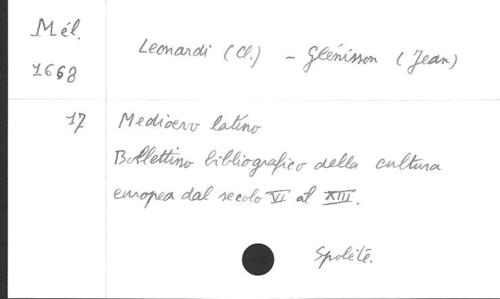 Mél.
1668
Leonardi (Cl.) - Glénisson (Jean)
17
Medioevo latino
Bollettino bibliografico della cultura
europea dal secolo VI al XIII.
Spolète.